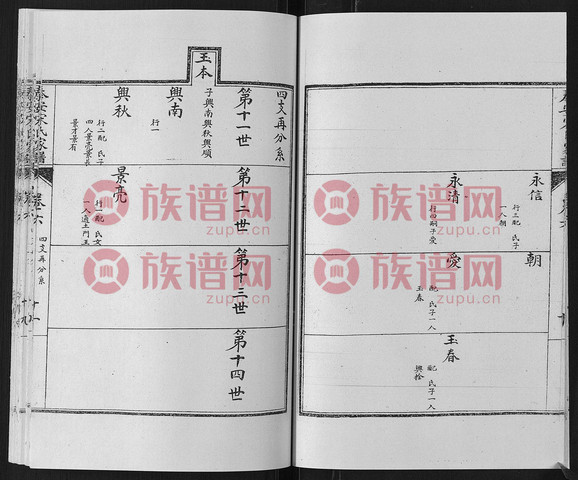 永信
行二配 氏子
一人朝
永清
行四嗣子愛
朝
愛
配 氏子一人
玉春
玉春
配 氏子一人
興栓
四支再分系
玉本
子興南興秋興順
第十一世
興南
行一
興秋
行二配 氏子
四人景亮景長
景才景有
第十二世
景亮
行一配 氏女
一人適土門王
第十三世
第十四世
泰安宋氏家譜
卷六
四支再分系
族谱网
zupu.cn
族谱网
zupu.cn
族谱网
zupu.cn
族谱网
zupu.cn
族谱网
zupu.cn
族谱网
zupu.cn